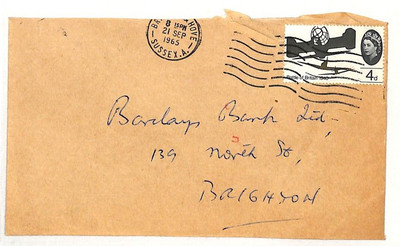 8 15PM
21 SEP
1965
SUSSEX.A.
Battle of Britain 1940
4d
Barclays Bank Ltd.,
139 North St,
BRIGHTON